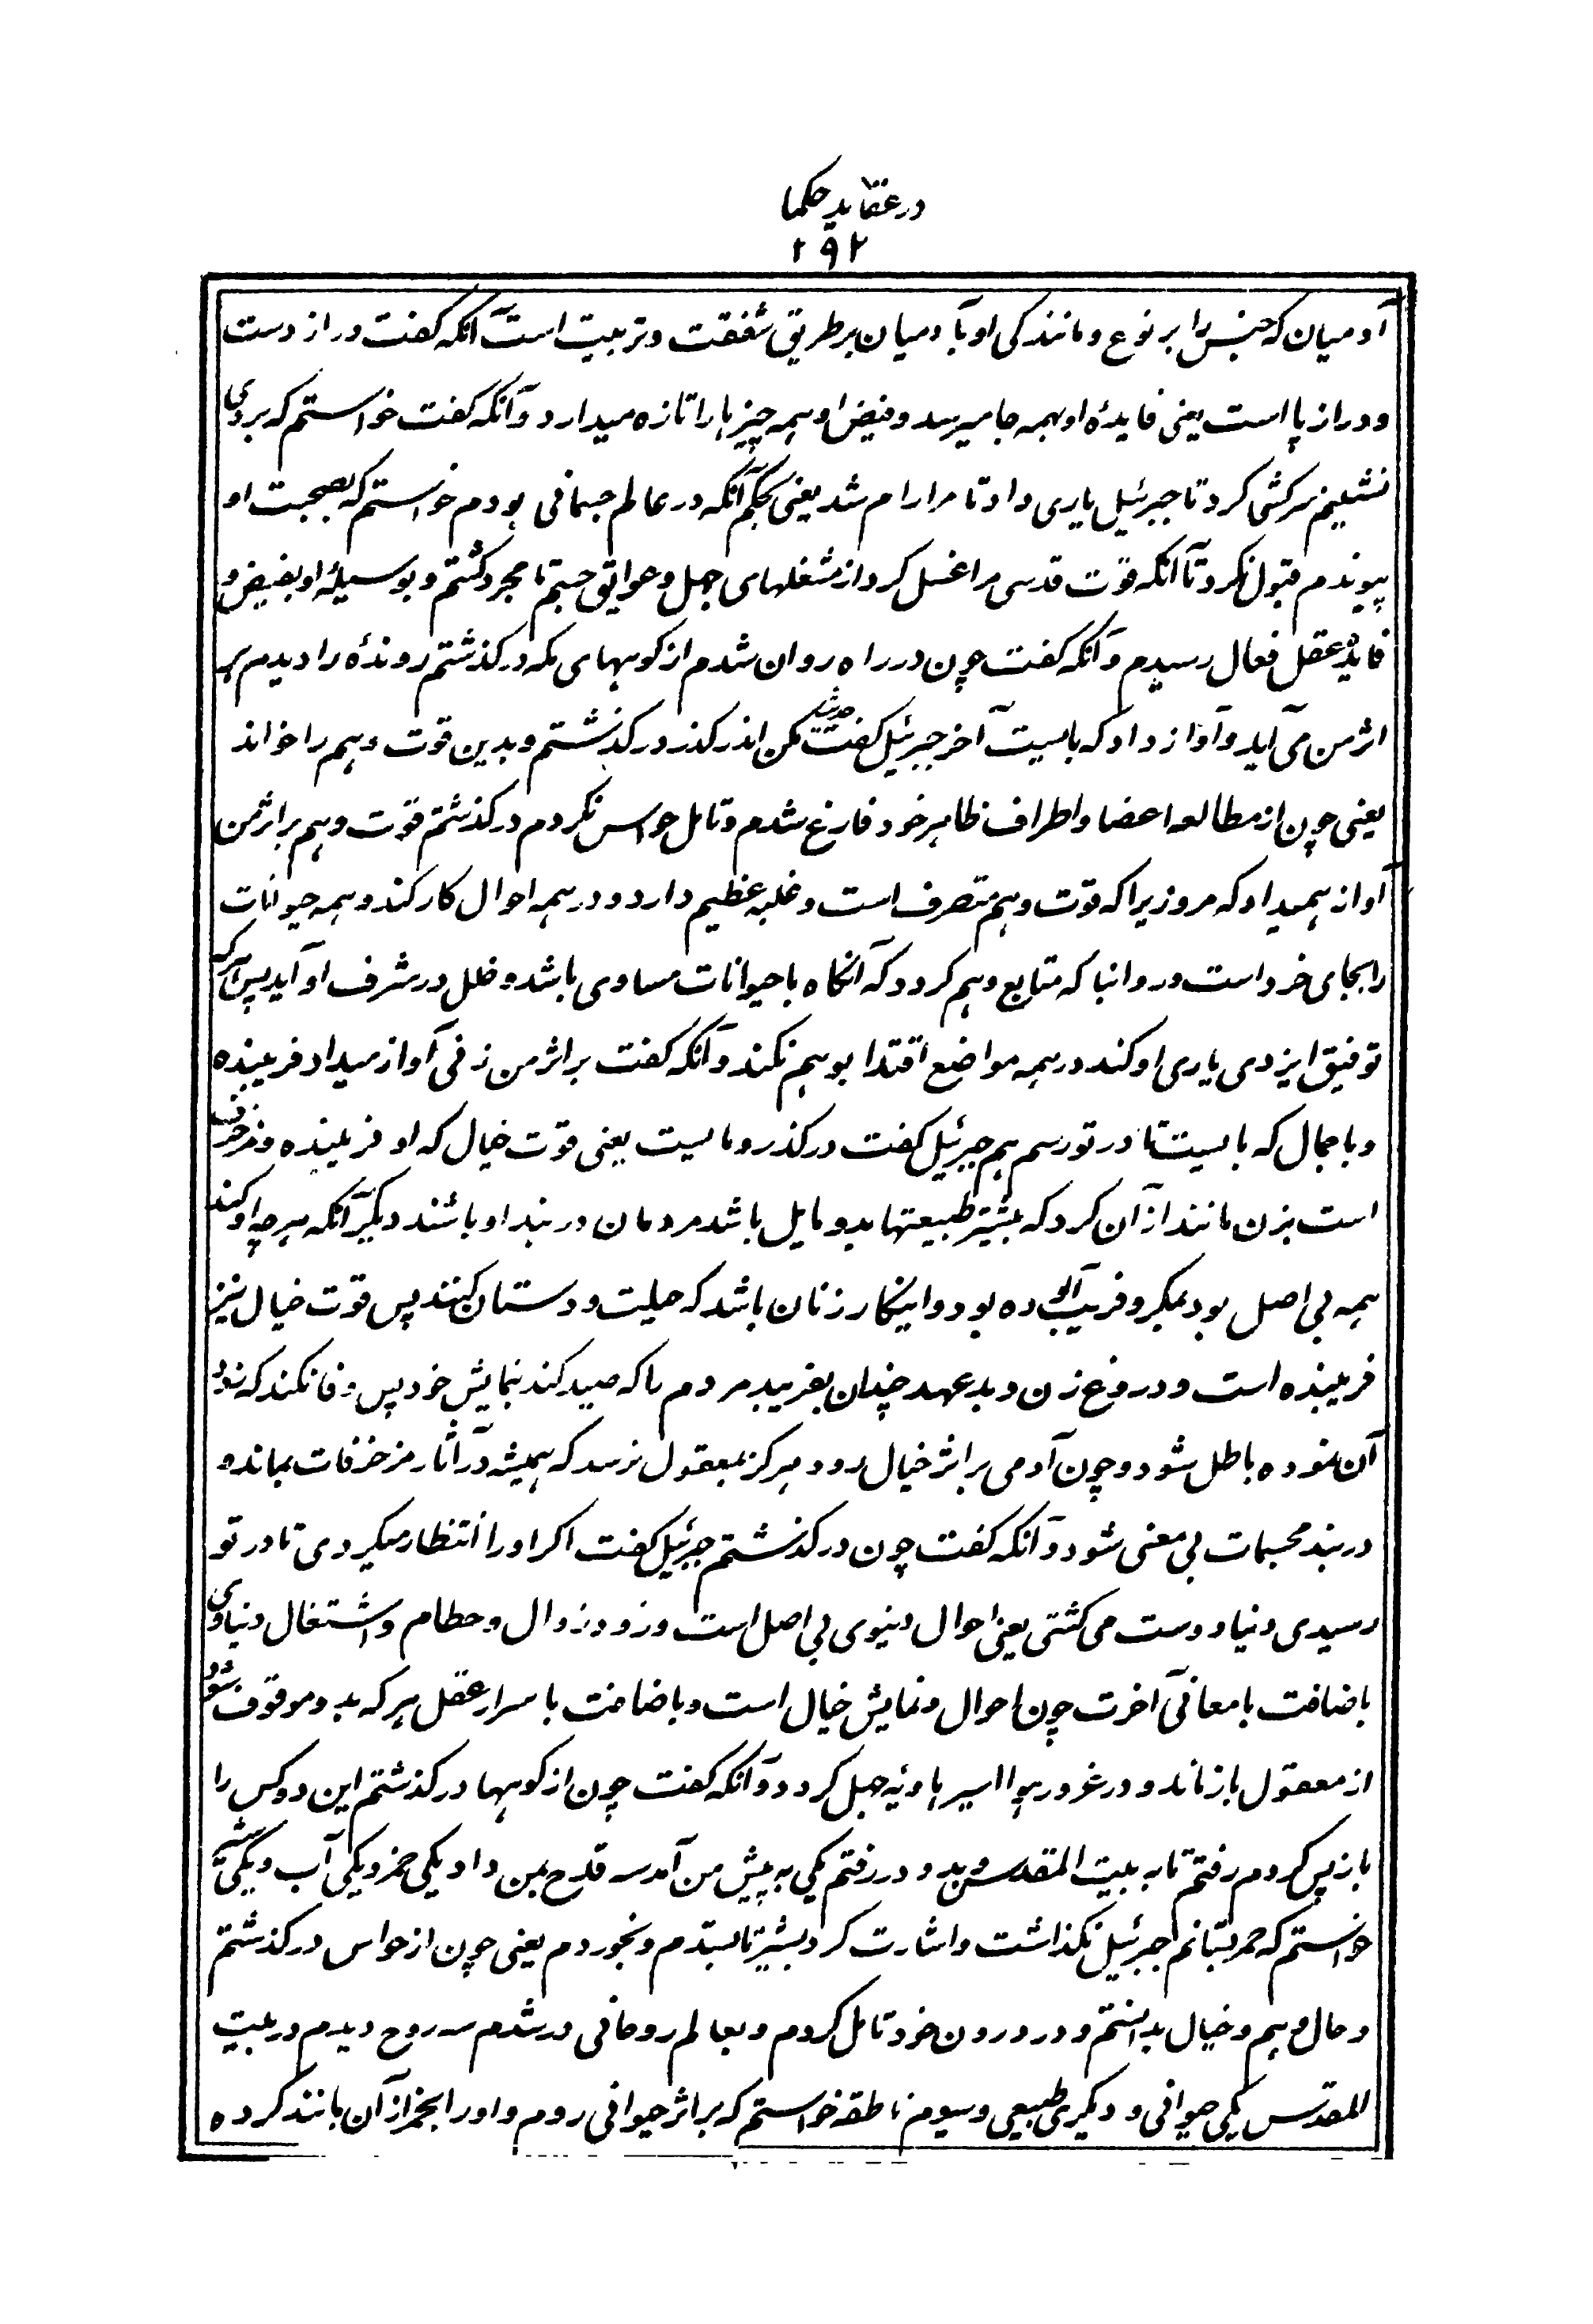 در عقاید حکما
۲۹۲
آدمیان که جنس را بر نوع و مانندگی او بآدمیان بر طریق شفقت و تربیت است آنکه گفت دراز دست
و دراز پا است یعنی فایدهٔ او بهمه جا میرسد و فیض او همه چیزها را تازه میدارد و آنکه گفت خواستم که بر وی
نشینم سرکشی کرد تا جبرئیل یاری داد تا مرا رام شد یعنی بحکم آنکه در عالم جسمانی بودم خواستم که بصحبت او
پیوندم قبول نکرد تا آنکه قوت قدسی مرا غسل کرد از مشغلهای جهل و عوایق جسم تا مجرد گشتم و بوسیلهٔ او بفیض و
فایدهٔ عقل فعال رسیدم و آنکه گفت چون در راه روان شدم از کوههای مکه درگذشتم روندهٔ را دیدم بر
اثر من می آید و آواز داد که بایست آخر جبرئیل گفت حدیث مکن اندر گذر درگذشتم و بدین قوت وهم را خواند
یعنی چون از مطالعه اعضا و اطراف ظاهر خود فارغ شدم و تامل حواس نکردم درگذشتم قوت وهم بر اثر من
آواز همیداد که مرو زیرا که قوت وهم متصرف است و غلبه عظیم دارد و در همه احوال کار کند و همه حیوانات
را بجای خرد است و روا نبا که متابع وهم گردد که آنگاه با حیوانات مساوی باشد و خلل در شرف او آید پس هر که
توفیق ایزدی یاری او کند در همه مواضع اقتدا بوهم نکند و آنکه گفت بر اثر من زنی آواز میداد فریبنده
و باجمال که بایست تا در تو رسم هم جبرئیل گفت درگذر و مایست یعنی قوت خیال که او فریبنده و مزخرف
است بزن مانند از آن کرد که بیشتر طبیعتها بدو مایل باشد مردمان در بند او باشند دیگر آنکه هر چه او کند
همه بی اصل بود بمکر و فریب آلوده بود و این کار زنان باشد که حیلت و دستان کنند پس قوت خیال نیز
فریبنده است و دروغ زن و بدعهد چندان بفریبد مردم را که صید کند بنمایش خود پس وفا نکند که زود
آن نموده باطل شود و چون آدمی بر اثر خیال رود هرگز بمعقول نرسد که همیشه در آثار مزخرفات بماند و
در بند مجسمات بی معنی شود و آنکه گفت چون درگذشتم جبرئیل گفت اگر او را انتظار میکردی تا در تو
رسیدی دنیا دوست می گشتی یعنی احوال دنیوی بی اصل است و زود زوال و حطام و اشتغال دنیاوی
باضافت با معانی آخرت چون احوال و نمایش خیال است و باضافت با اسرار عقل هر که بدو موقوف شود
از معقول باز ماند و در غرور هوا اسیر هاویهٔ جهل گردد و آنکه گفت چون از کوهها درگذشتم این دو کس را
باز پس کردم رفتم تا به بیت المقدس و بدو در رفتم یکی به پیش من آمد سه قدح بمن داد یکی خمر و یکی آب و یکی شیر
خواستم که خمر بستانم جبرئیل نگذاشت و اشارت کرد بشیر تا بستدم و بخوردم یعنی چون از حواس درگذشتم
و حال وهم و خیال بدانستم و در درون خود تامل کردم و بعالم روحانی در شدم سه روح دیدم در بیت
المقدس یکی حیوانی و دیگری طبیعی و سیوم ناطقه خواستم که بر اثر حیوانی روم و او را بخمر از آن مانند کرده